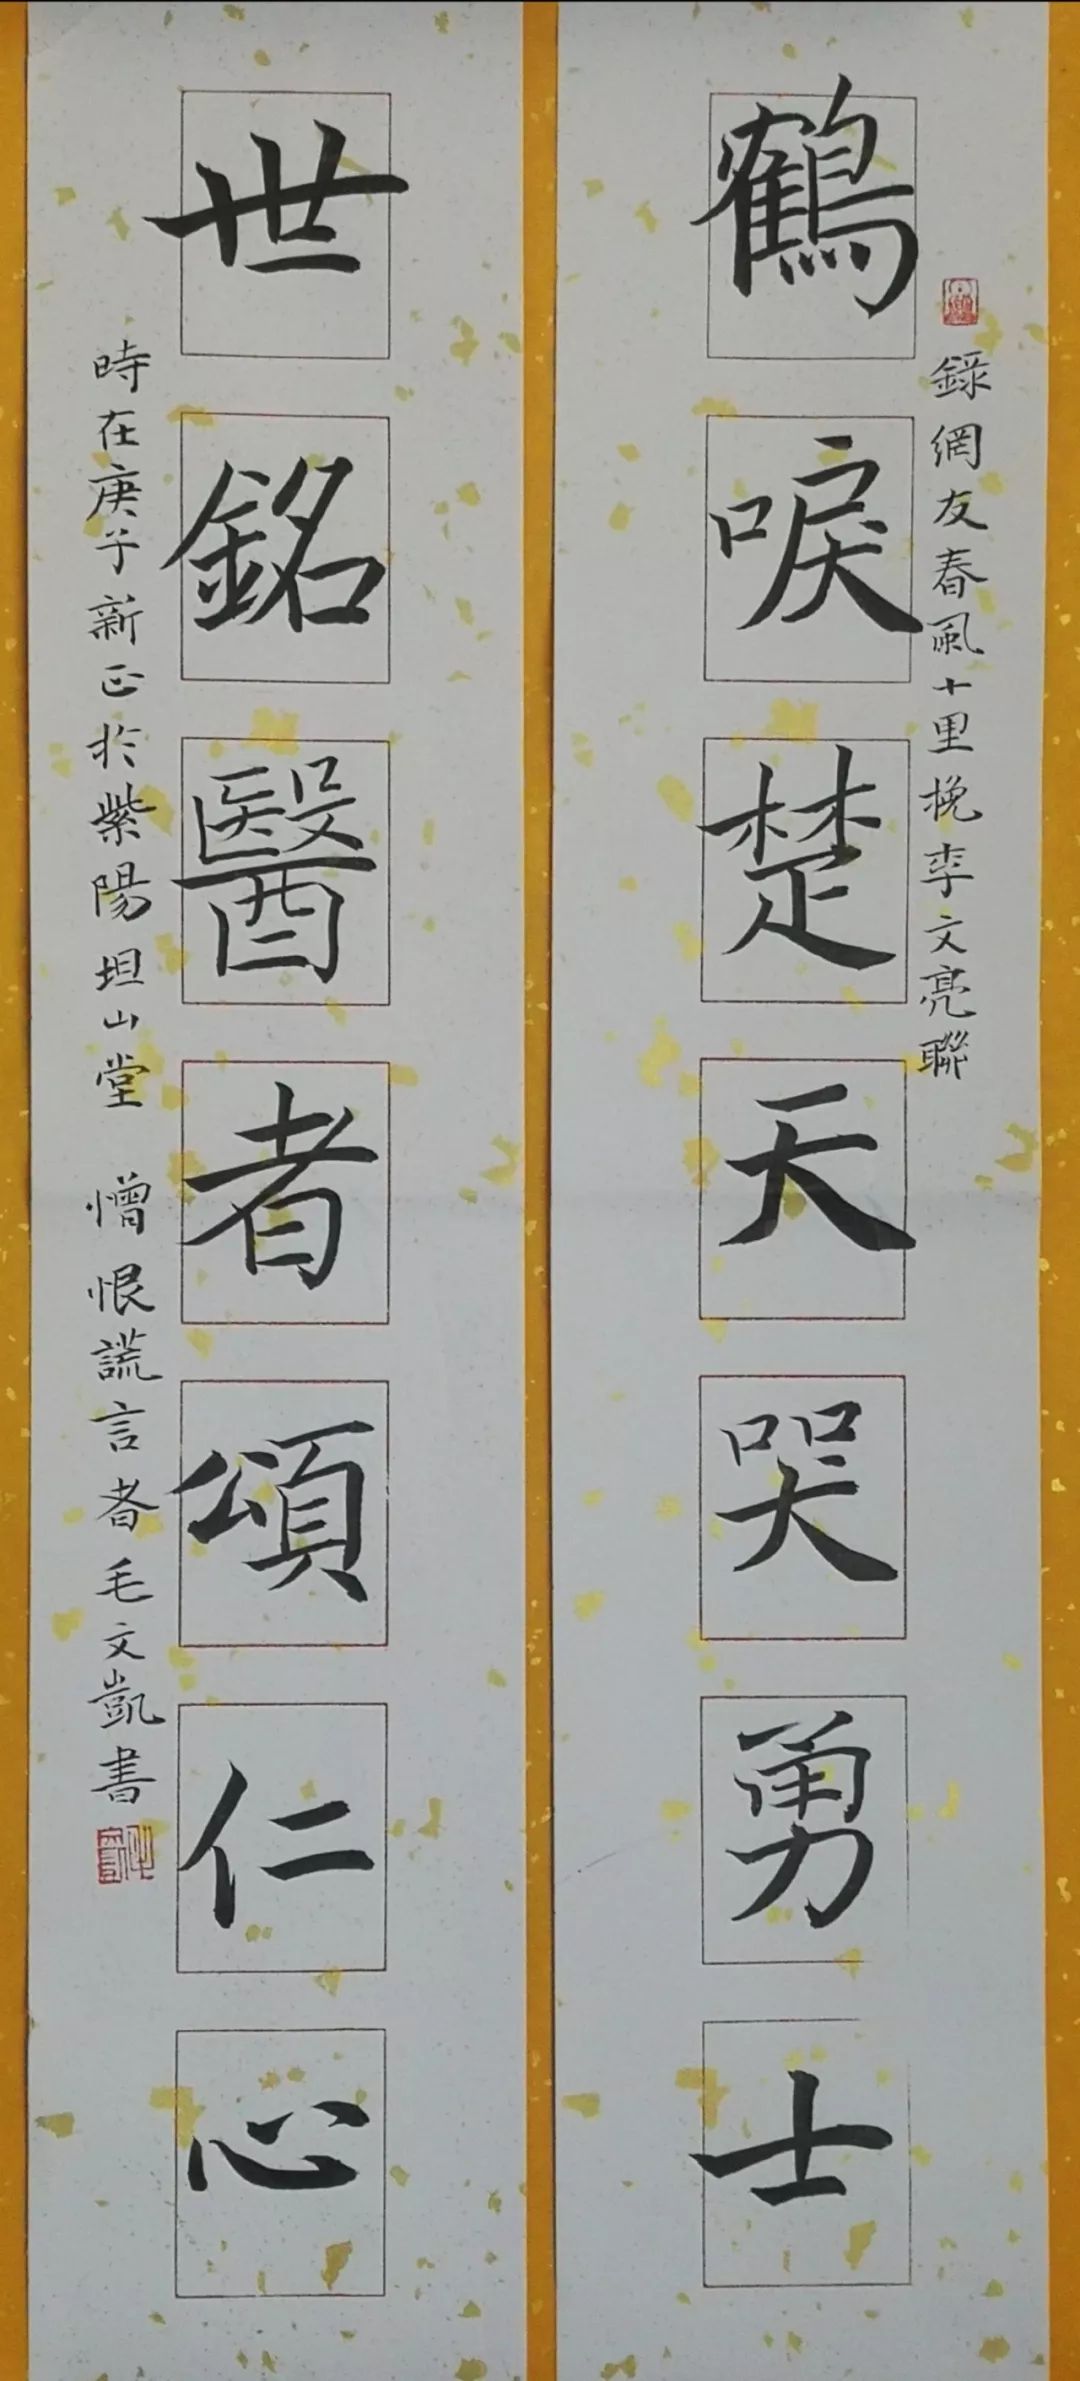 錄網友春風十里挽李文亮聯
鶴唳楚天哭勇士
世銘醫者頌仁心
時在庚子新正於紫陽坦山堂 憎恨謊言者毛文凱書